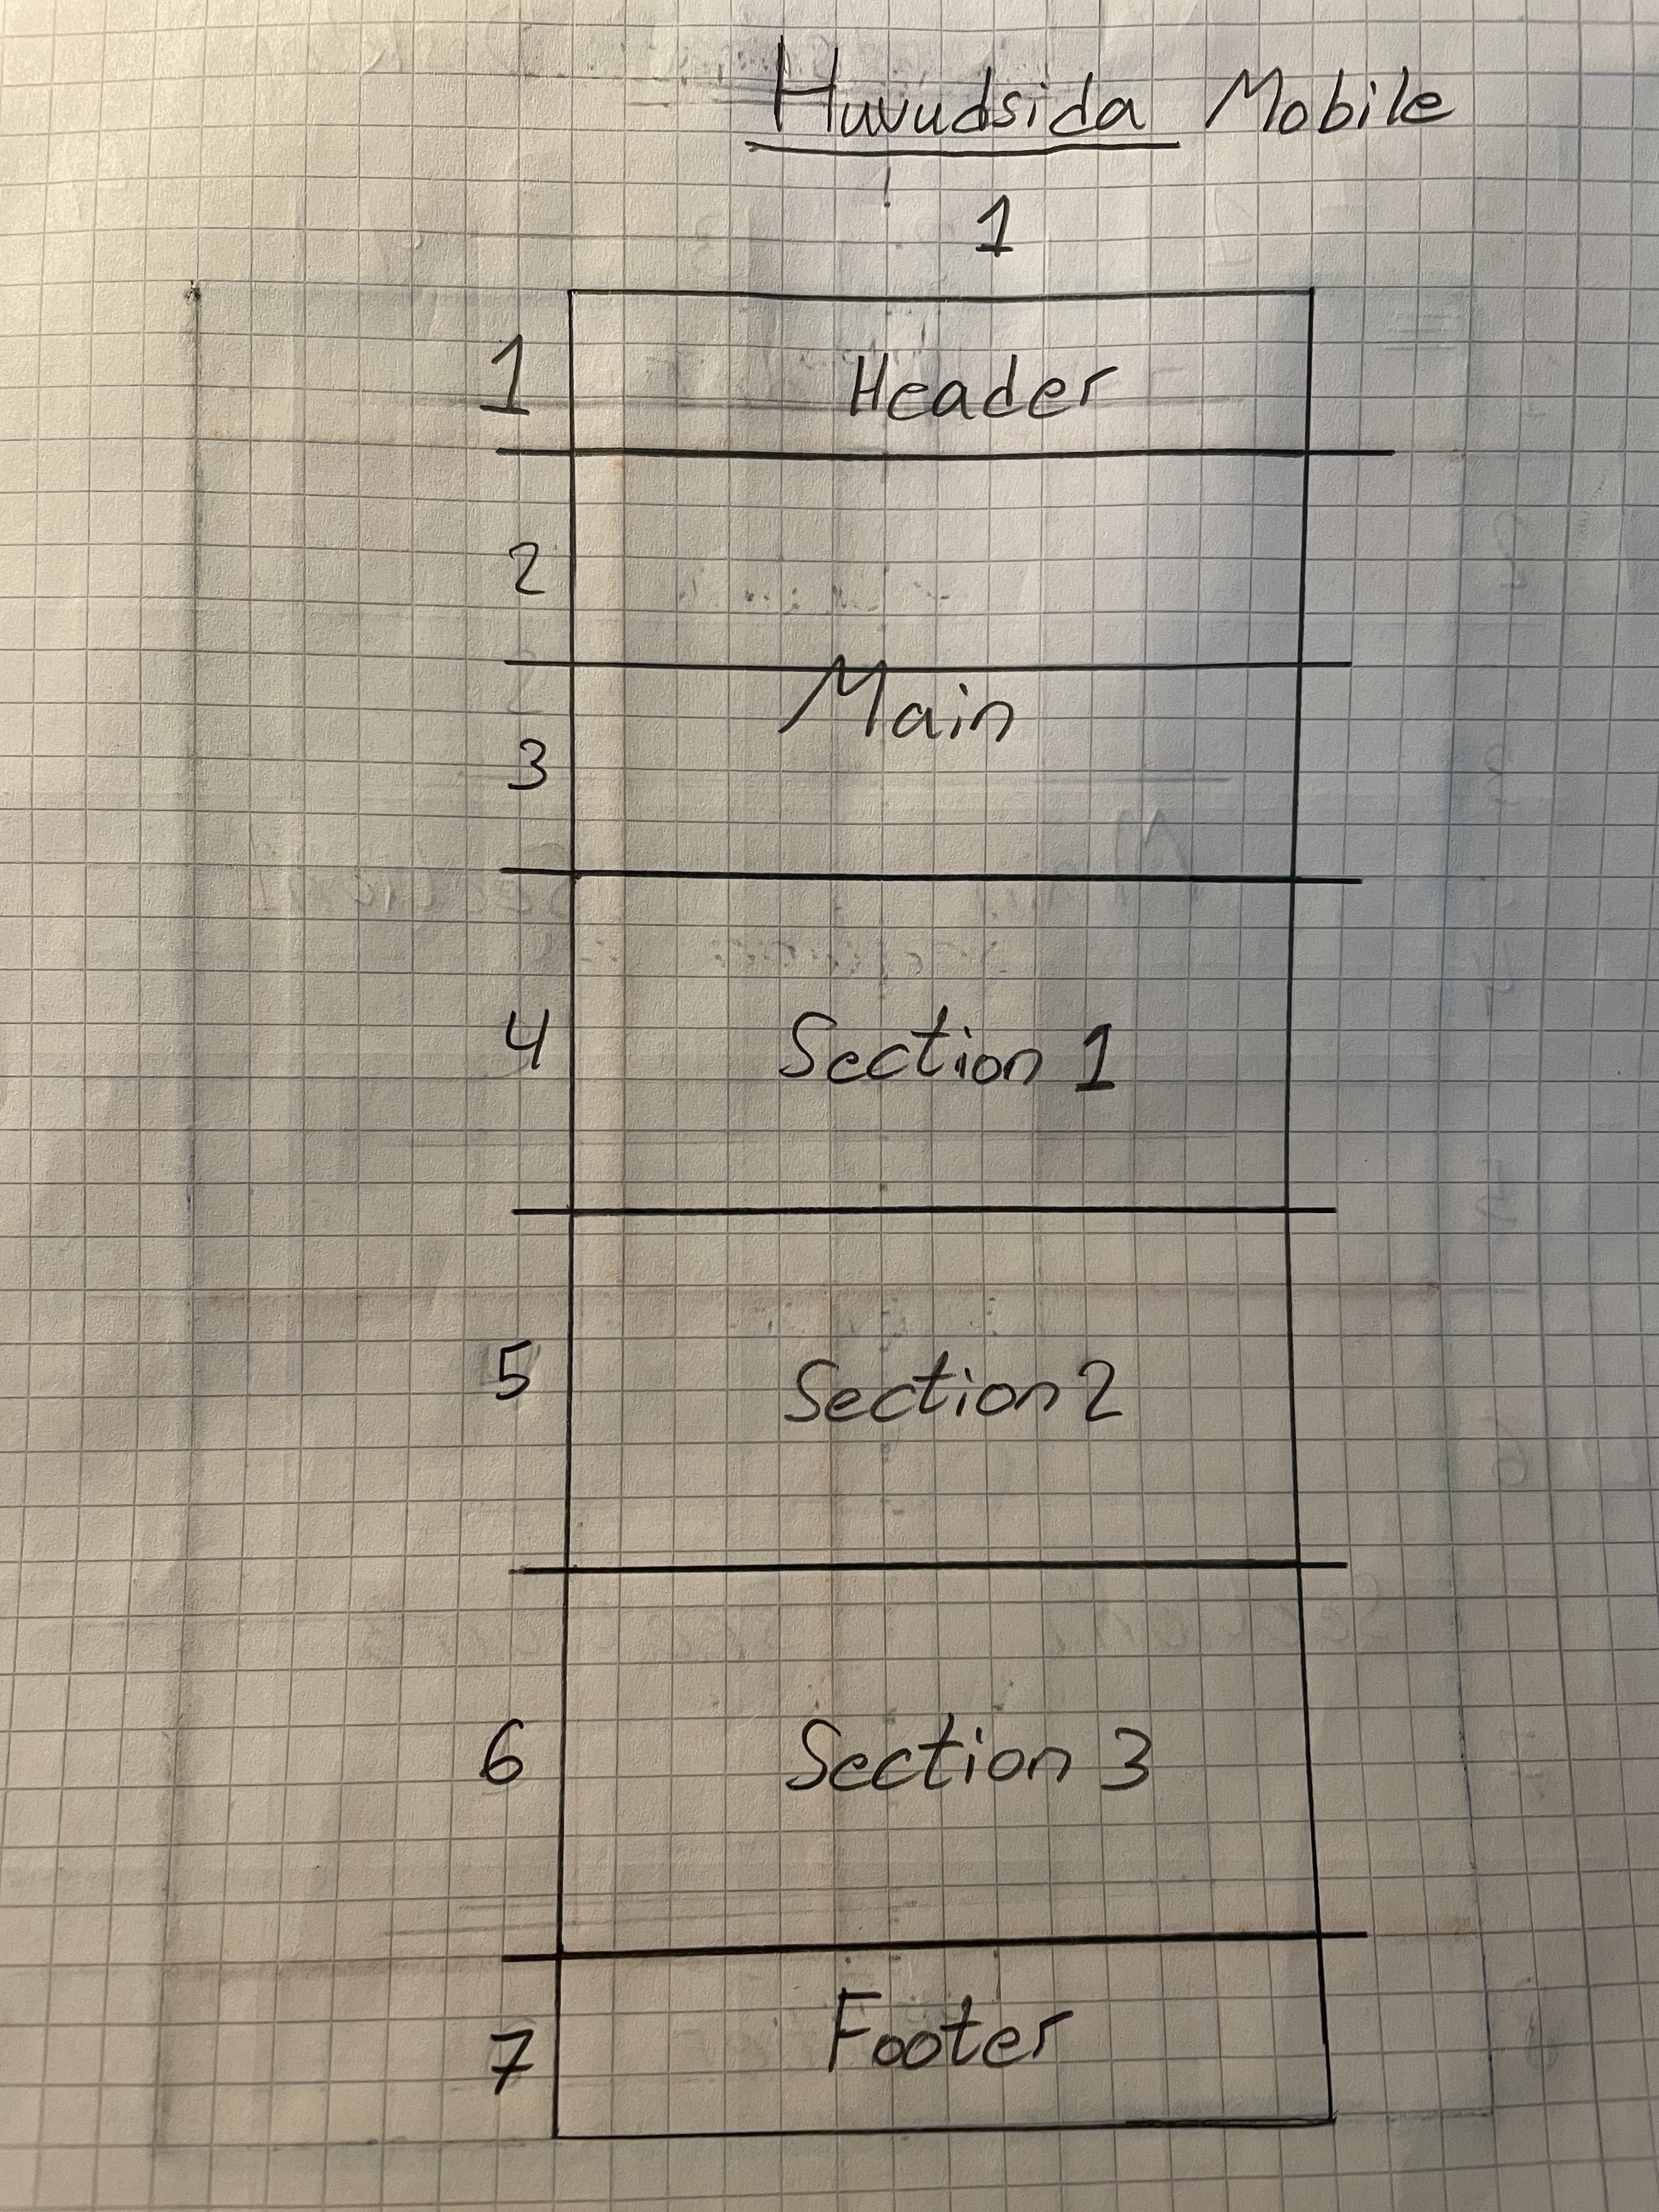 Huvudsida Mobile
1
1 Header
2
Main
3
4 Section 1
5 Section 2
6 Section 3
7 Footer